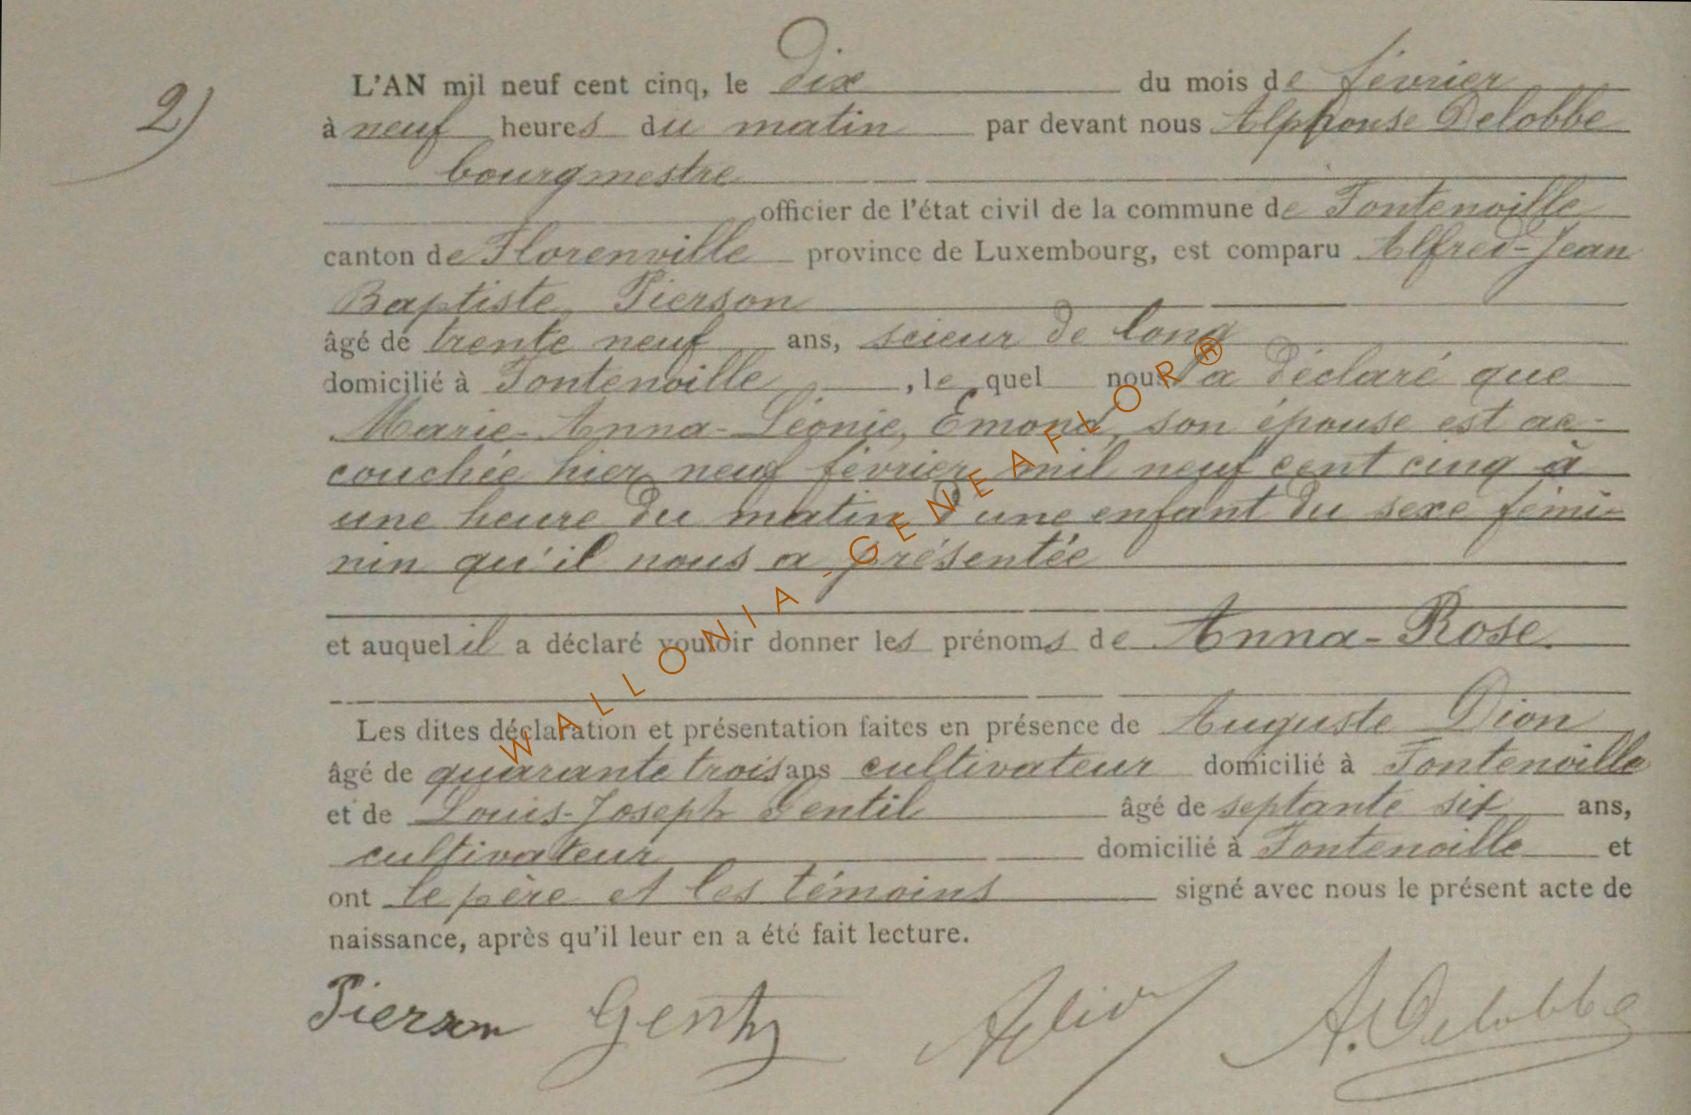 2)
L'AN mil neuf cent cinq, le dix du mois de février
à neuf heures du matin par devant nous Alphonse Delobbe
bourgmestre
officier de l'état civil de la commune de Fontenoille
canton de Florenville province de Luxembourg, est comparu Alfred-Jean
Baptiste Pierson
âgé de trente neuf ans, scieur de long
domicilié à Fontenoille, le quel nous a déclaré que
Marie-Anna-Léonie, Emond, son épouse est ac-
couchée hier neuf février mil neuf cent cinq à
une heure du matin d'une enfant du sexe fémi-
nin qu'il nous a présentée
et auquel il a déclaré vouloir donner les prénoms de Anna-Rose.
Les dites déclaration et présentation faites en présence de Auguste Dion
âgé de quarante trois ans cultivateur domicilié à Fontenoille
et de Louis-Joseph Gentil âgé de septante six ans,
cultivateur domicilié à Fontenoille et
ont le père et les témoins signé avec nous le présent acte de
naissance, après qu'il leur en a été fait lecture.
Pierson A. Delobbe
WALLONIA-GENEAFLOR®